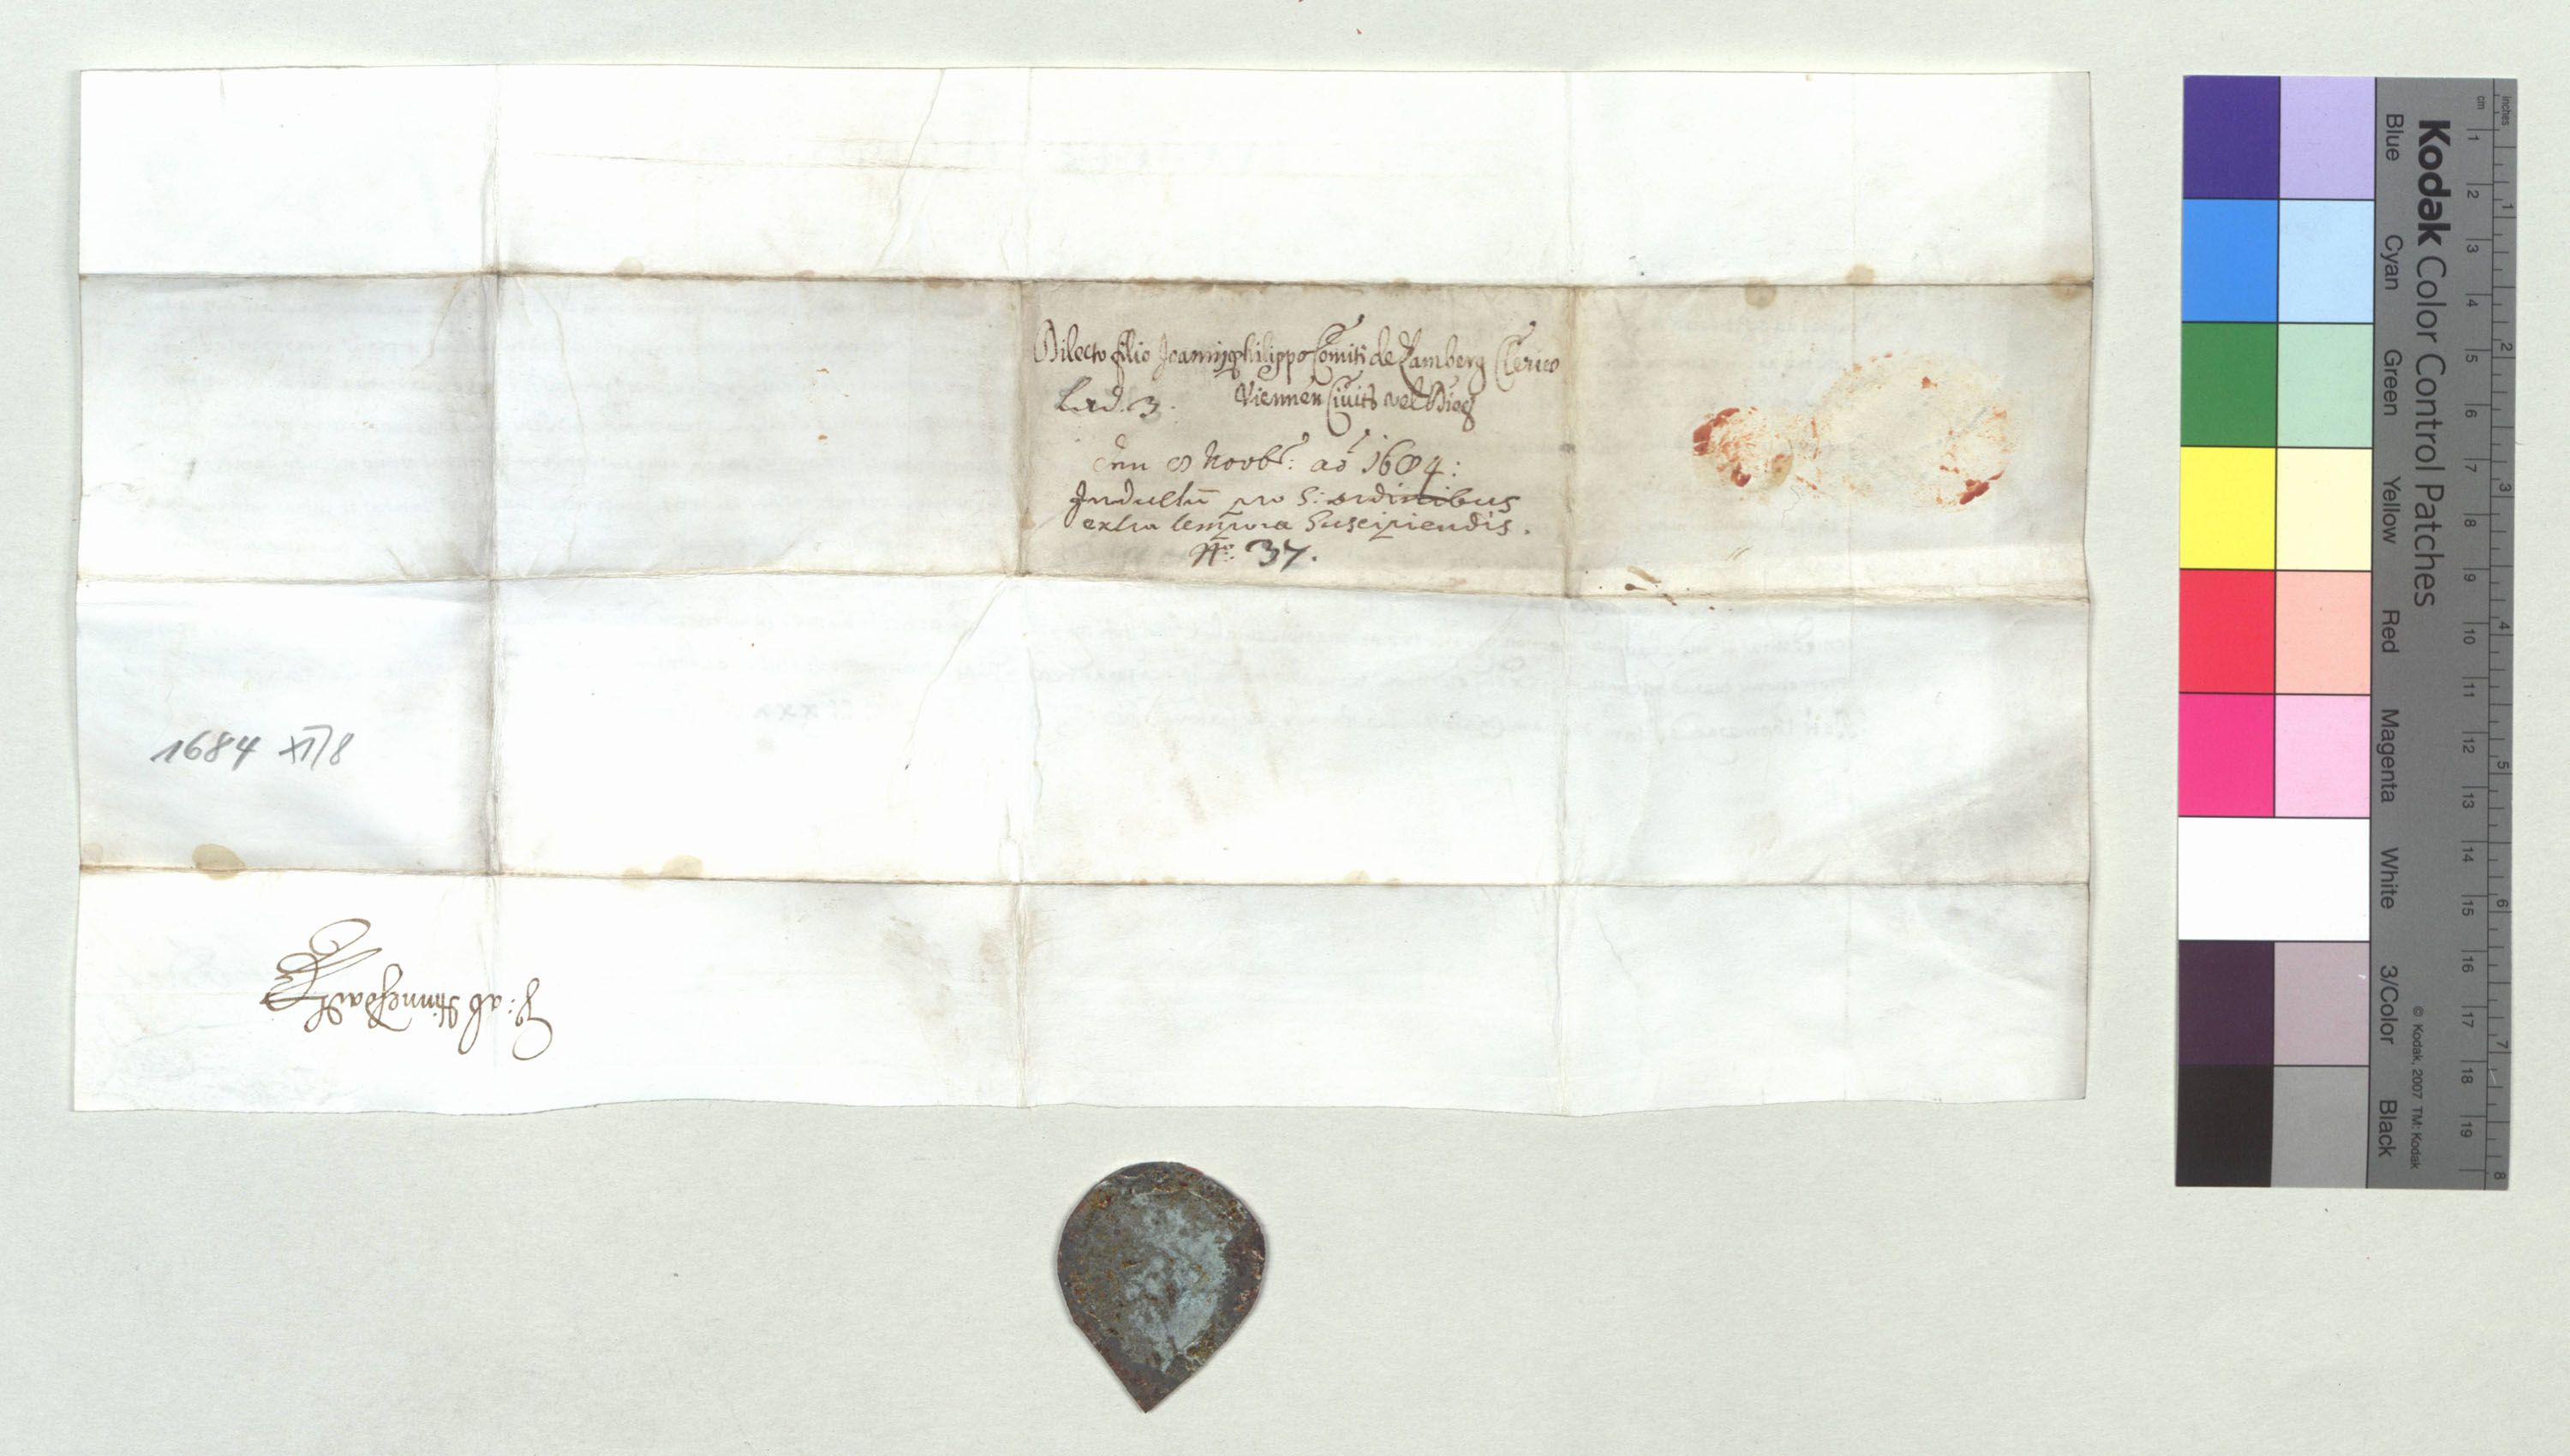 Dilecto filio Joanni Philippo Comiti de Lamberg Clerico
Lad. 3. Viennen Civits vel Dioc
den 8 Novbr: ao 1684:
Indultu pro S: ordinibus
extra tempora Suscipiendis.
No. 37.
1684 XI/8
J: ab
Kodak Color Control Patches
Blue Cyan Green Yellow Red Magenta White 3/Color Black
© Kodak, 2007 TM: Kodak
cm 1 2 3 4 5 6 7 8 9 10 11 12 13 14 15 16 17 18 19
inches 1 2 3 4 5 6 7 8